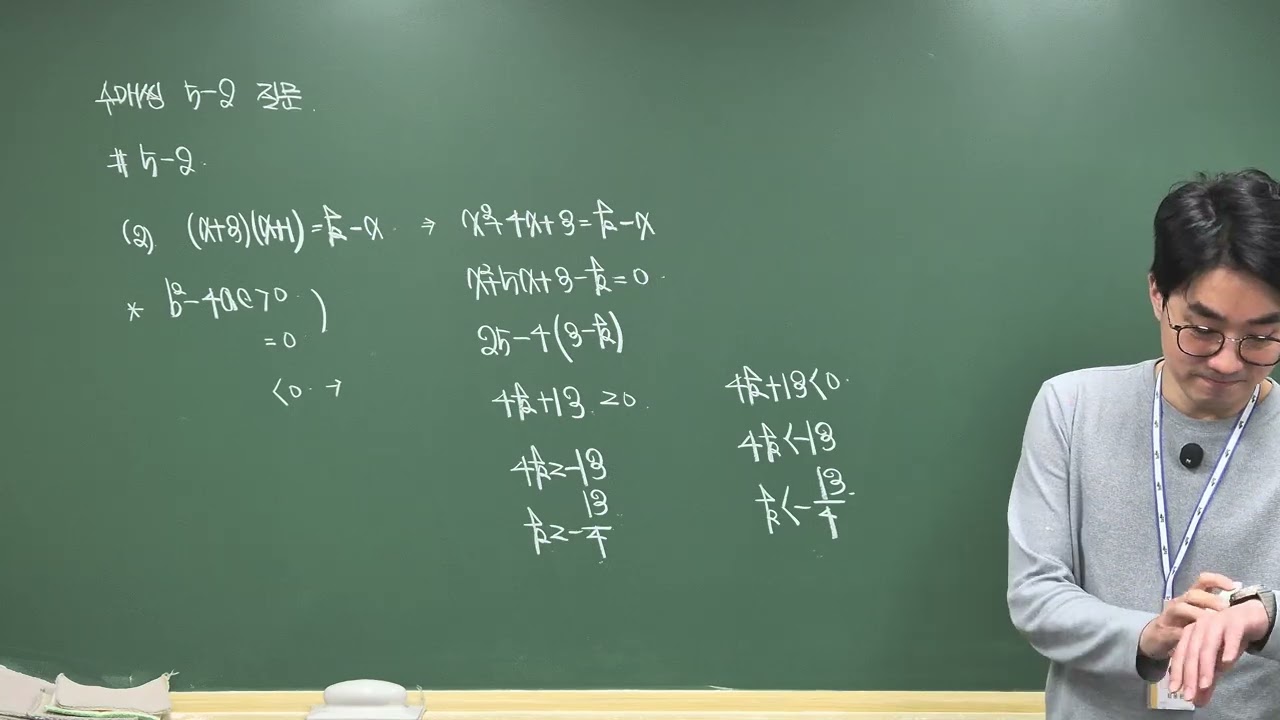 수매씽 5-2 질문.
# 5-2.
(2) (x+3)(x+1)=k-x. ⇒ x²+4x+3=k-x
x²+5x+3-k=0.
* b²-4ac>0. )
=0
<0. →
25-4(3-k)
4k+13 ≥0.
4k≥-13
k≥-13/4.
4k+13<0.
4k<-13
k<-13/4.